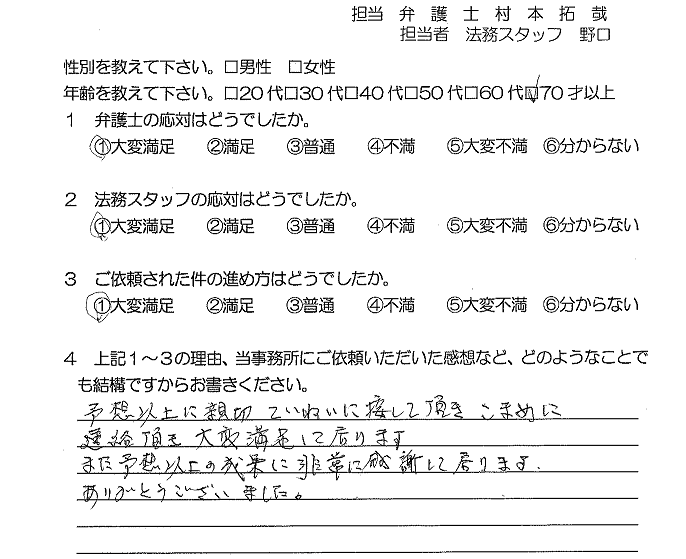 担当 弁護士村本拓哉
担当者 法務スタッフ 野口
性別を教えて下さい。□男性 □女性
年齢を教えて下さい。□20代□30代□40代□50代□60代☑70才以上
1 弁護士の応対はどうでしたか。
①大変満足 ②満足 ③普通 ④不満 ⑤大変不満 ⑥分からない
2 法務スタッフの応対はどうでしたか。
①大変満足 ②満足 ③普通 ④不満 ⑤大変不満 ⑥分からない
3 ご依頼された件の進め方はどうでしたか。
①大変満足 ②満足 ③普通 ④不満 ⑤大変不満 ⑥分からない
4 上記1～3の理由、当事務所にご依頼いただいた感想など、どのようなことで
も結構ですからお書きください。
予想以上に親切ていねいに接して頂き こまめに
連絡頂き 大変満足して居ります
また予想以上の成果に非常に感謝して居ります.
ありがとうございました。